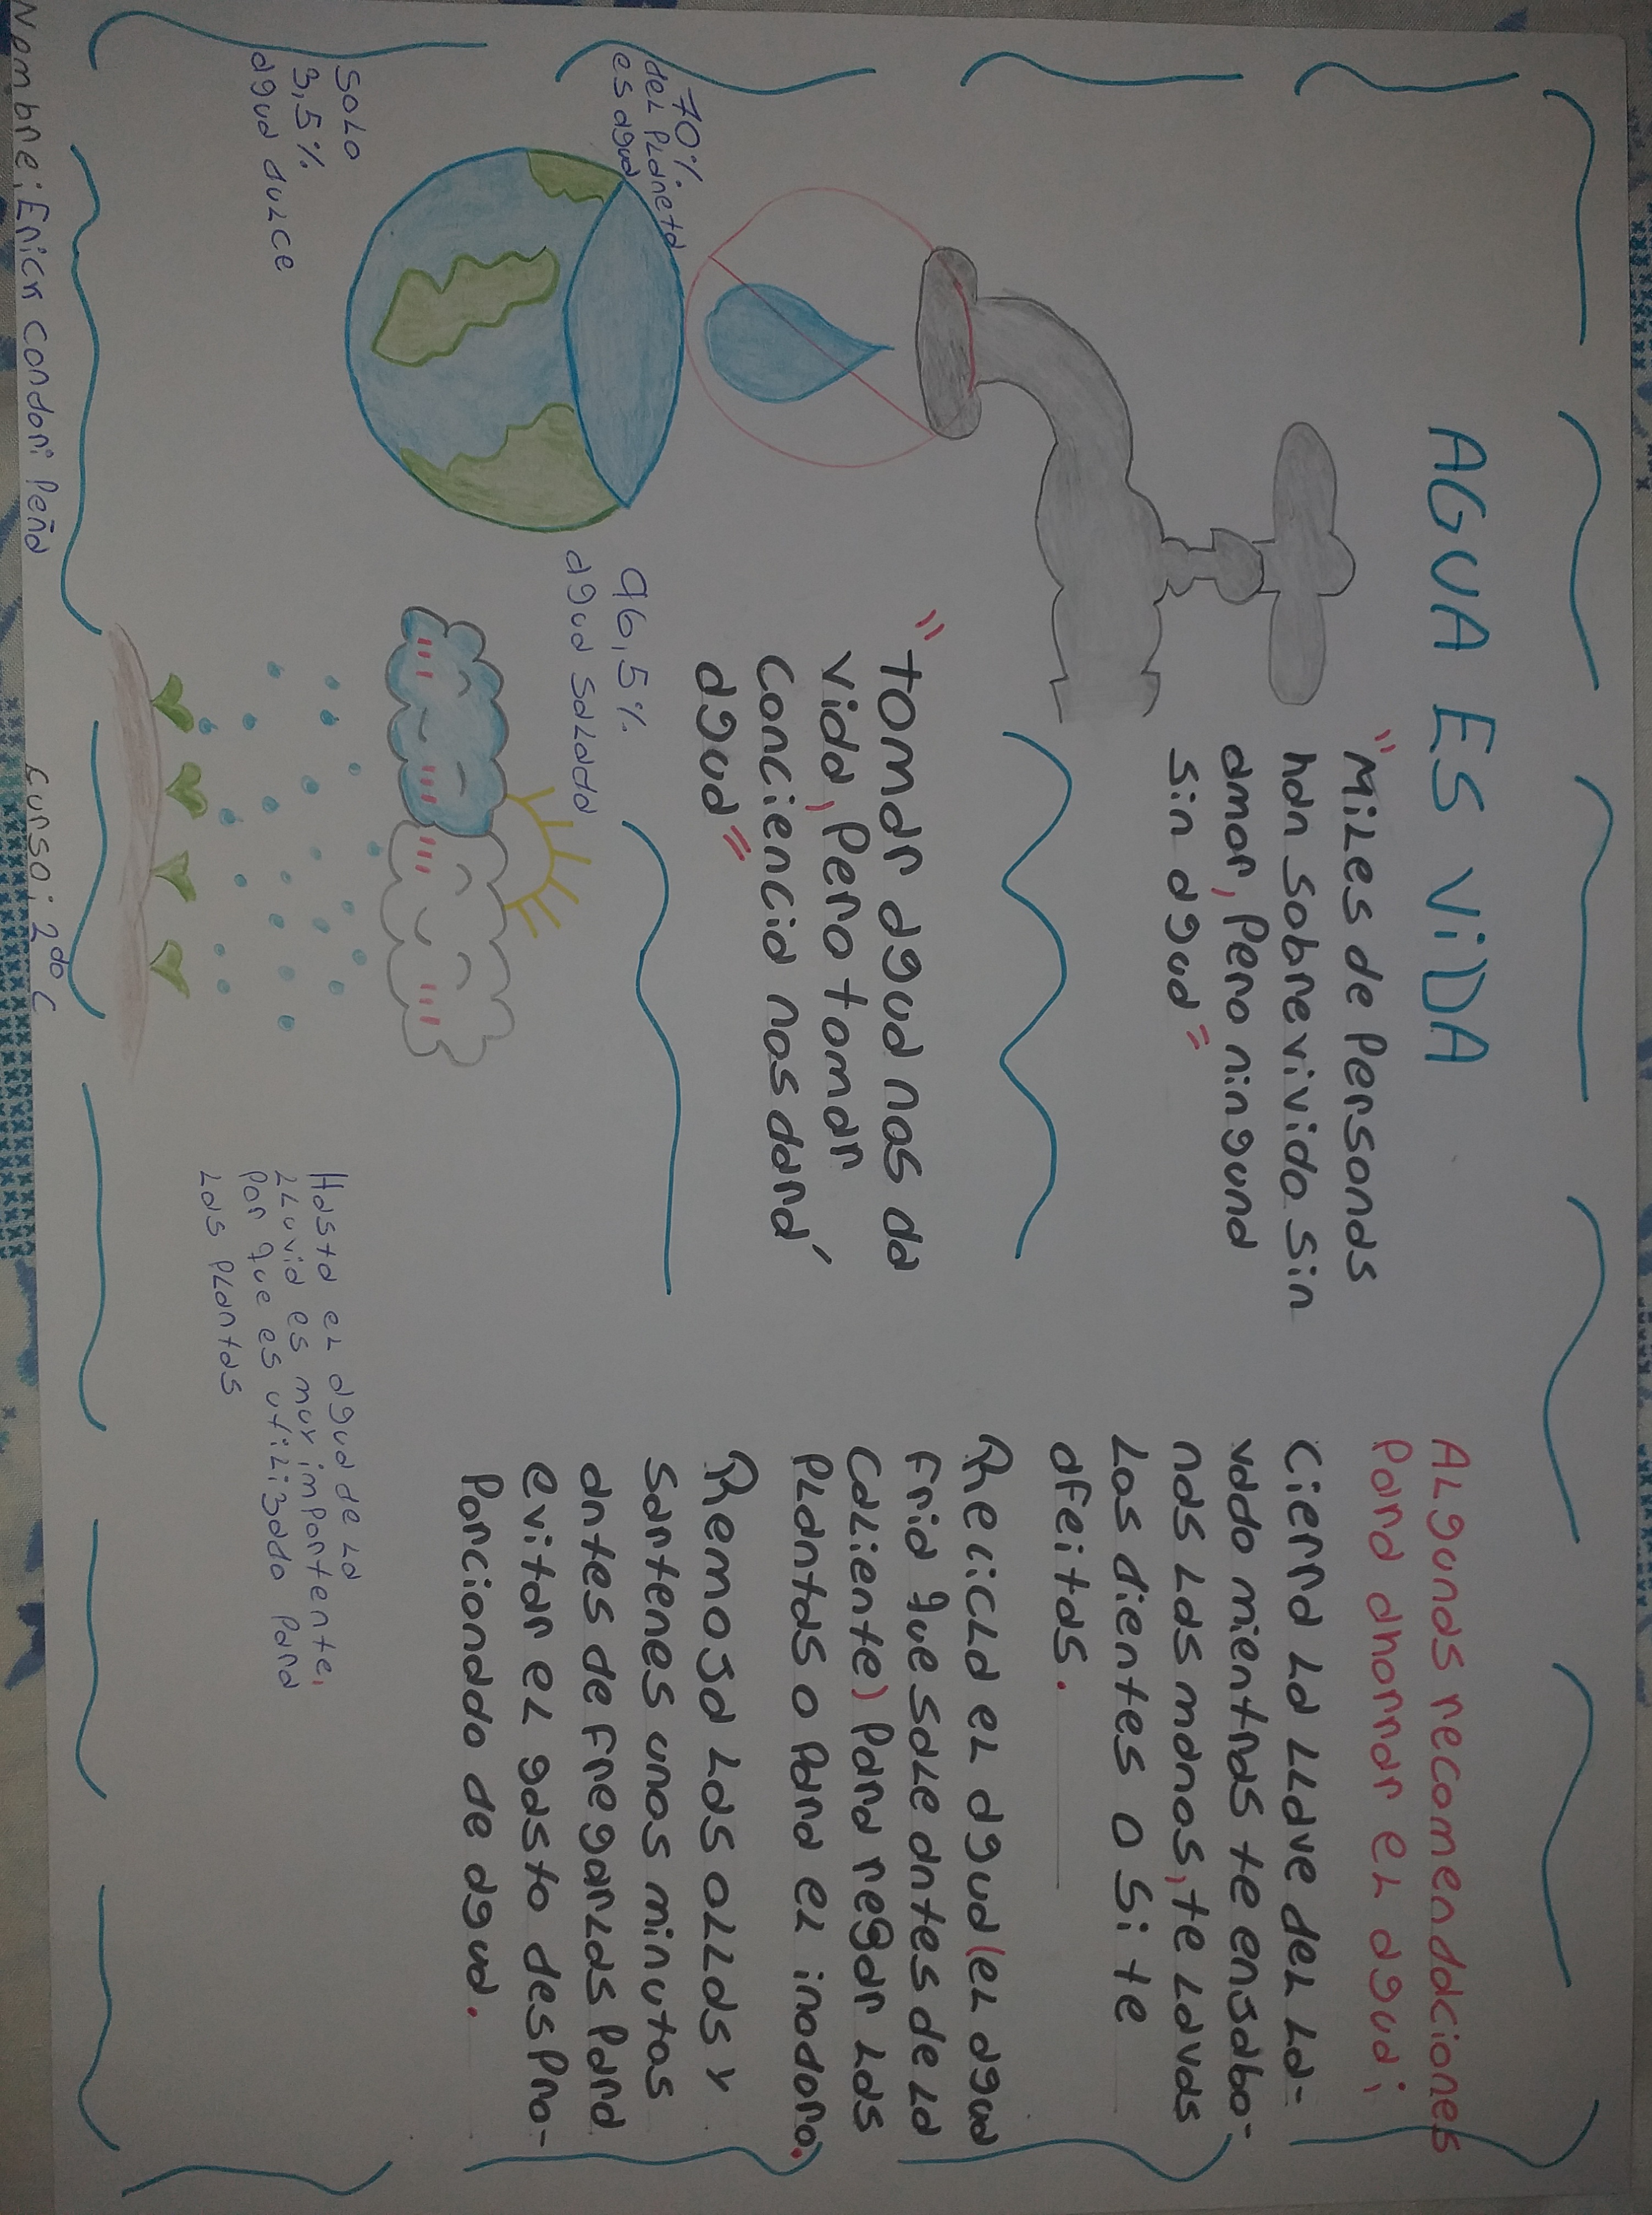 AGUA ES ViDA
"Miles de Personas
han sobrevivido sin
amor, Pero ninguna
sin agua"
"tomar agua nos da
vida, Pero tomar
conciencia nos dará
agua"
70%
del Planeta
es agua
96,5%
agua salada
solo
3,5%
agua dulce
Hasta el agua de la
lluvia es muy importente,
por que es utilizado para
las plantas
Algunas recomendaciones
para ahorrar el agua:
Cierra la llave del la-
vado mientras te enjabo-
nas las manos, te lavas
los dientes o si te
afeitas.
Recicla el agua (el agua
fria que sale antes de la
caliente) para regar las
plantas o para el inodoro.
Remoja las ollas y
sartenes unos minutos
antes de fregarlas para
evitar el gasto despro-
porcionado de agua.
Nombre: Erick Condori Peña
Curso: 2do C